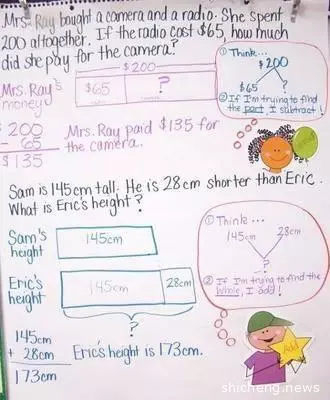 Mrs. Ray bought a camera and a radio. She spent
200 altogether. If the radio cost $65, how much
did she pay for the camera?
① Think...
$200
$200
$65
Mrs. Ray's
money
$65
?
?
② If I'm trying to find
the part, I subtract!
200
- 65
$135
Mrs. Ray paid $135 for
the camera.
Sam is 145cm tall. He is 28cm shorter than Eric.
What is Eric's height?
① Think...
145cm
28cm
?
Sam's
height
145cm
Eric's
height
145cm
28cm
② If I'm trying to find the
whole, I add!
?
145cm
+ 28cm
173cm
Eric's height is 173cm.
Add
shicheng.news